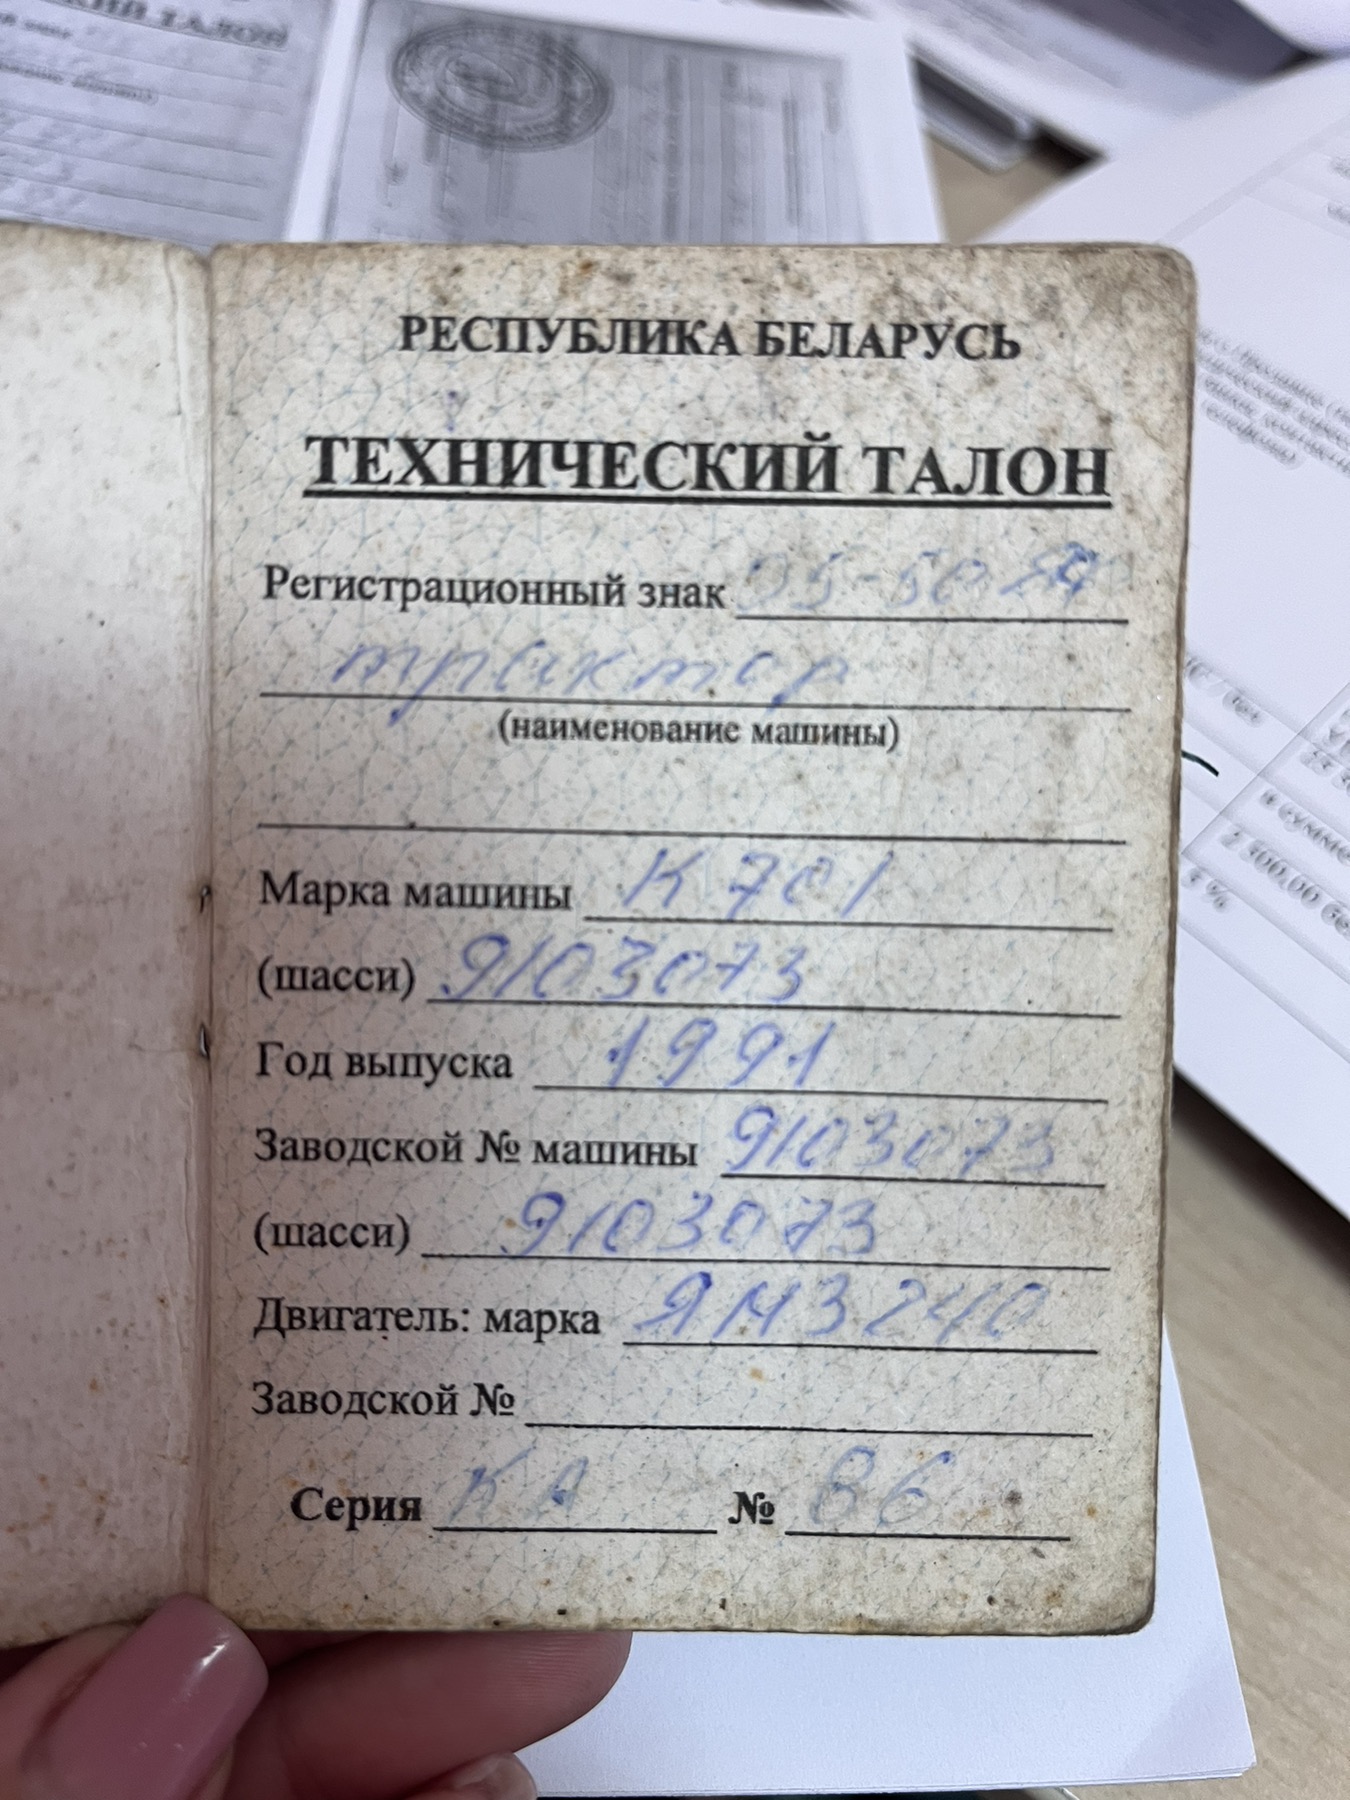 РЕСПУБЛИКА БЕЛАРУСЬ
ТЕХНИЧЕСКИЙ ТАЛОН
Регистрационный знак
трактор
(наименование машины)
Марка машины К 701
(шасси) 9103073
Год выпуска 1991
Заводской № машины 9103073
(шасси) 9103073
Двигатель: марка ЯМЗ 240
Заводской №
Серия КА № 86
в сумме
2 300,00
3 %